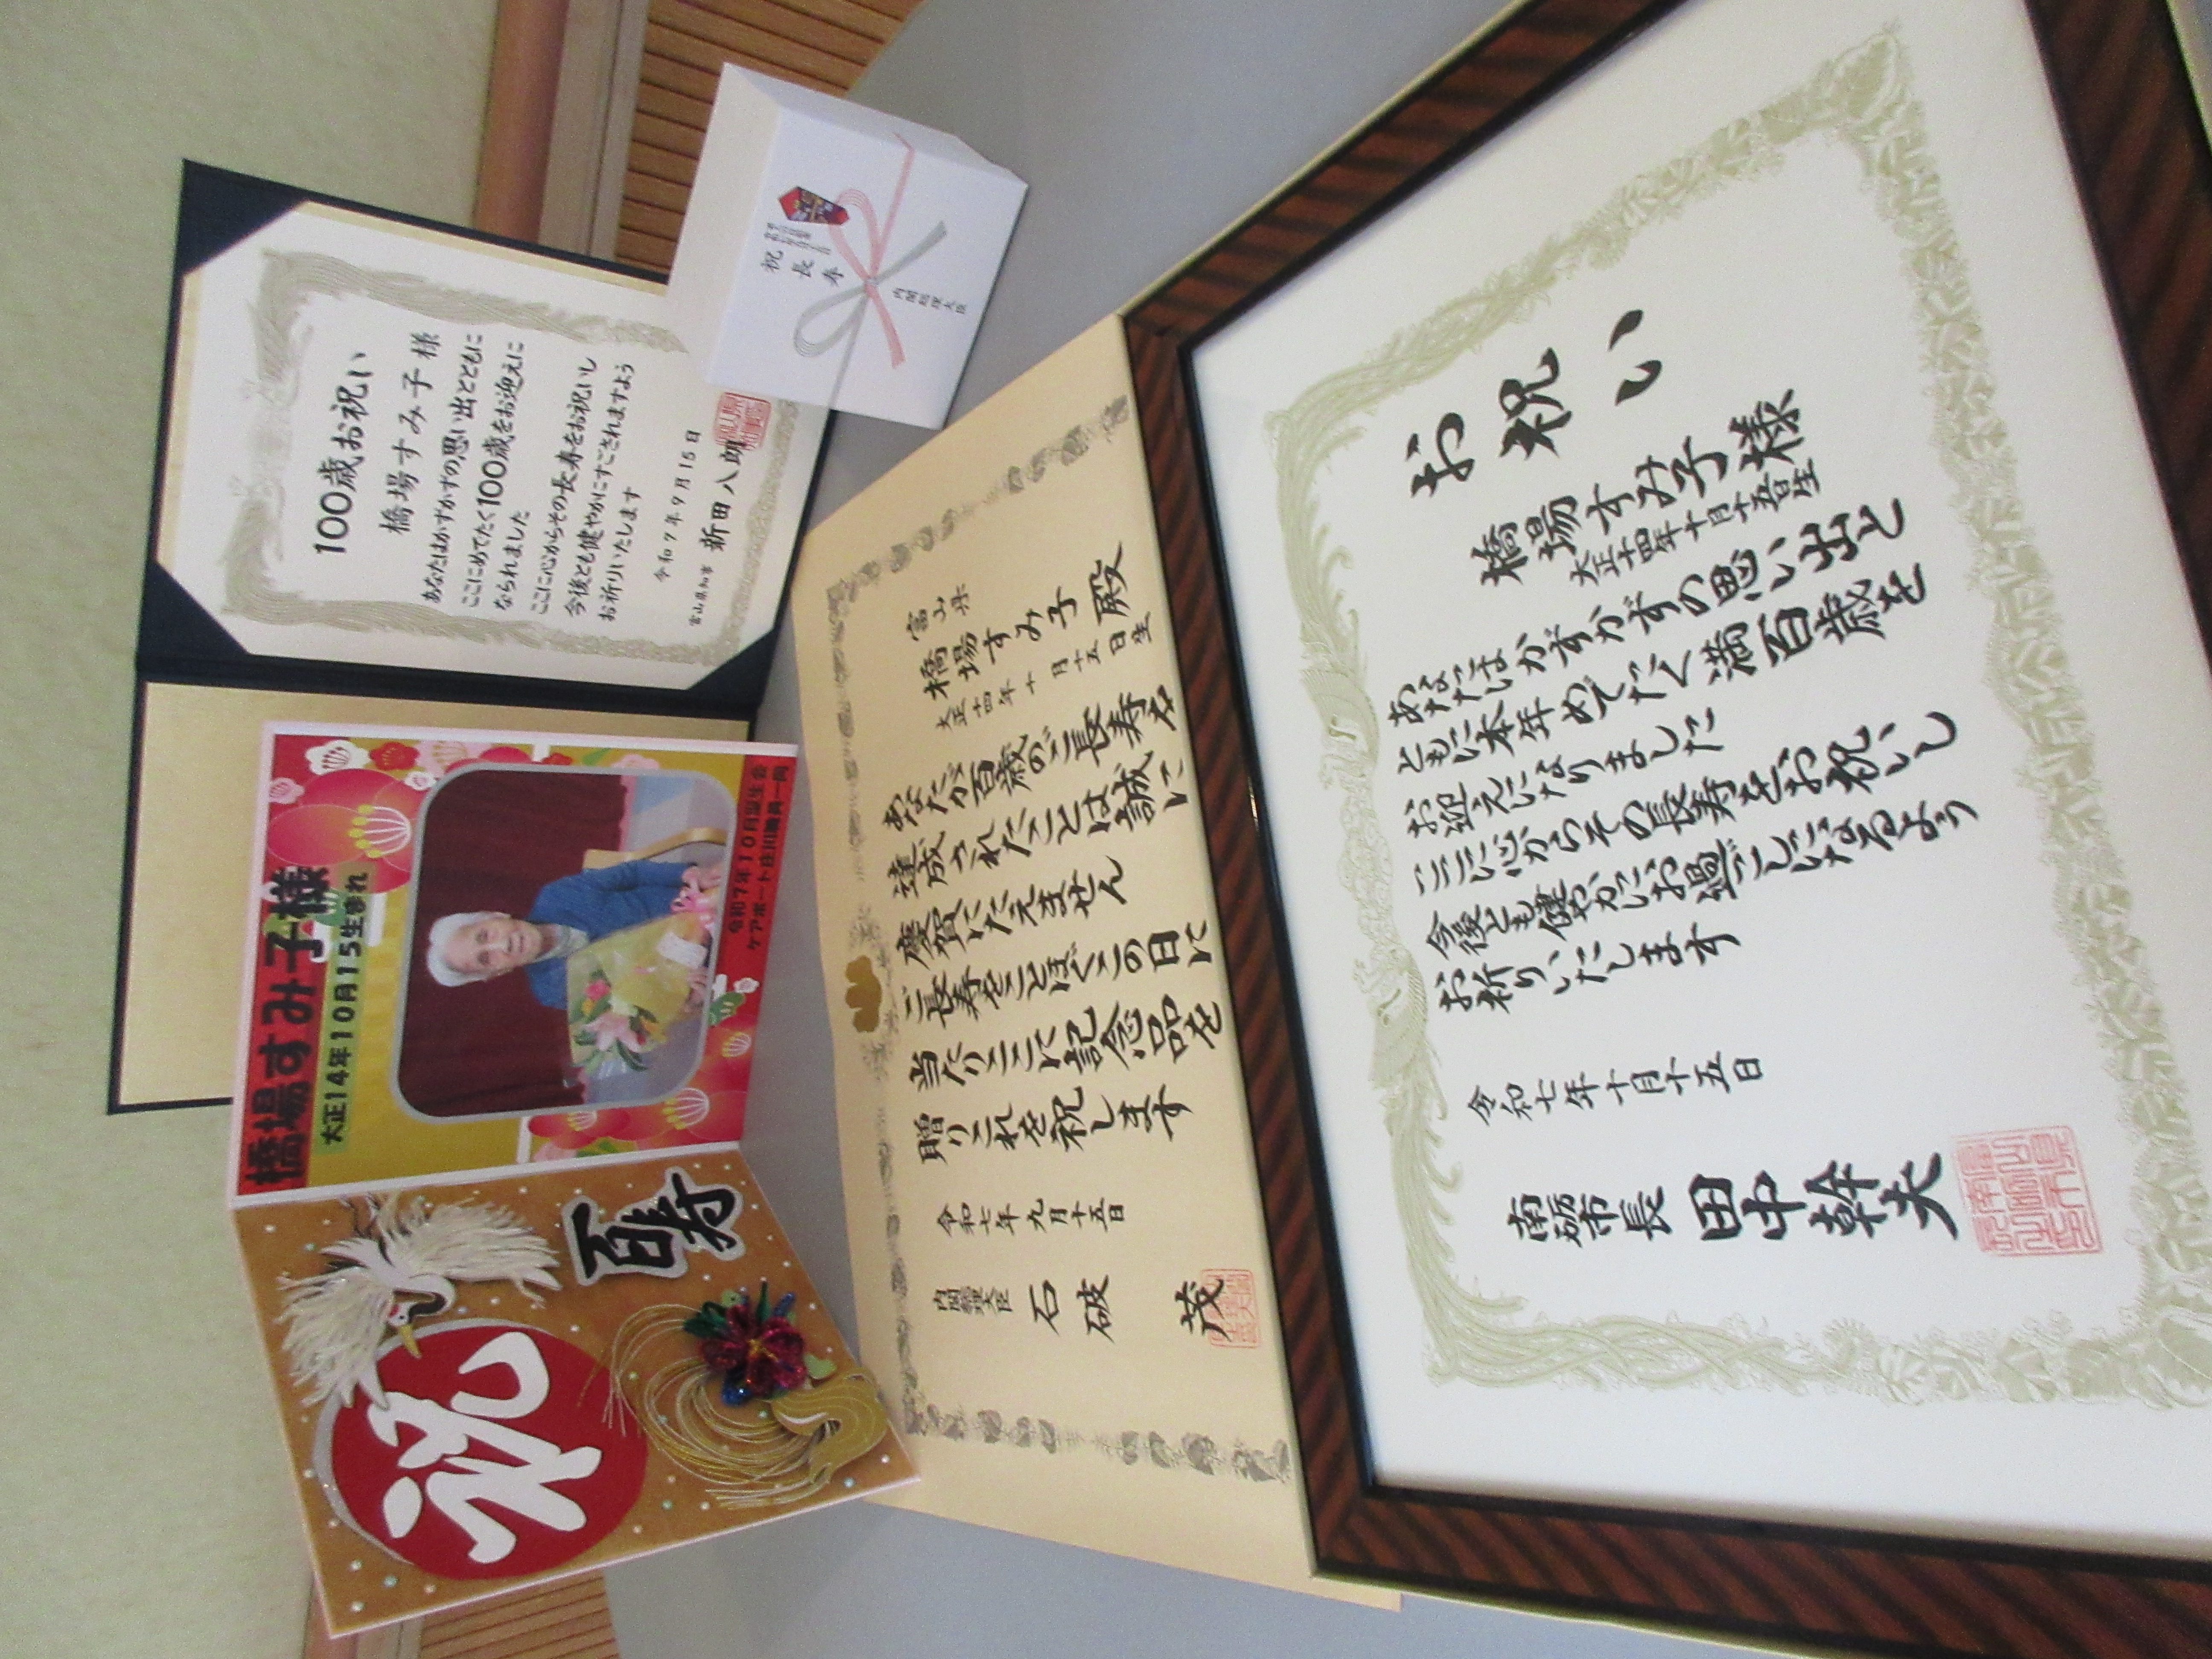 100歳お祝い
橋場すみ子様
あなたはかずかずの思い出とともに
ここにめでたく100歳をお迎えに
なられました
ここに心からその長寿をお祝いし
今後とも健やかにすごされますよう
お祈りいたします
令和7年9月15日
富山県知事 新田八朗
祝
長
寿
内閣総理大臣
橋場すみ子様
大正14年10月15生まれ
令和7年10月誕生会
ケアポート庄川職員一同
祝
百寿
富山県
橋場すみ子殿
大正十四年十月十五日生
あなたが百歳のご長寿を
達成されたことは誠に
慶賀にたえません
ご長寿をことほぐこの日に
当たりここに記念品を
贈りこれを祝します
令和七年九月十五日
内閣総理大臣
石破茂
お祝い
橋場すみ子様
大正十四年十月十五日生
あなたはかずかずの思い出と
ともに本年めでたく満百歳を
お迎えになりました
ここに心からその長寿をお祝いし
今後とも健やかにお過ごしになるよう
お祈りいたします
令和七年十月十五日
南砺市長 田中幹夫